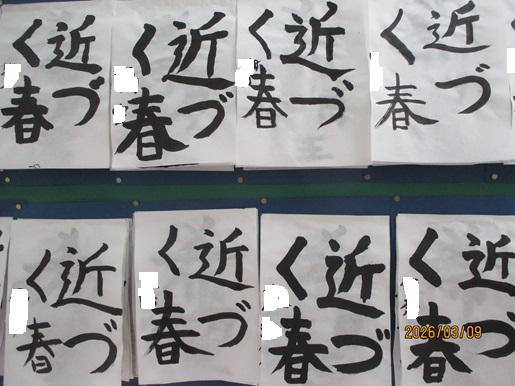 近づ
く春
近づ
く春
近づ
く春
近づ
く春
近づ
く春
近づ
く春
近づ
く春
近づ
く春
2026/03/09